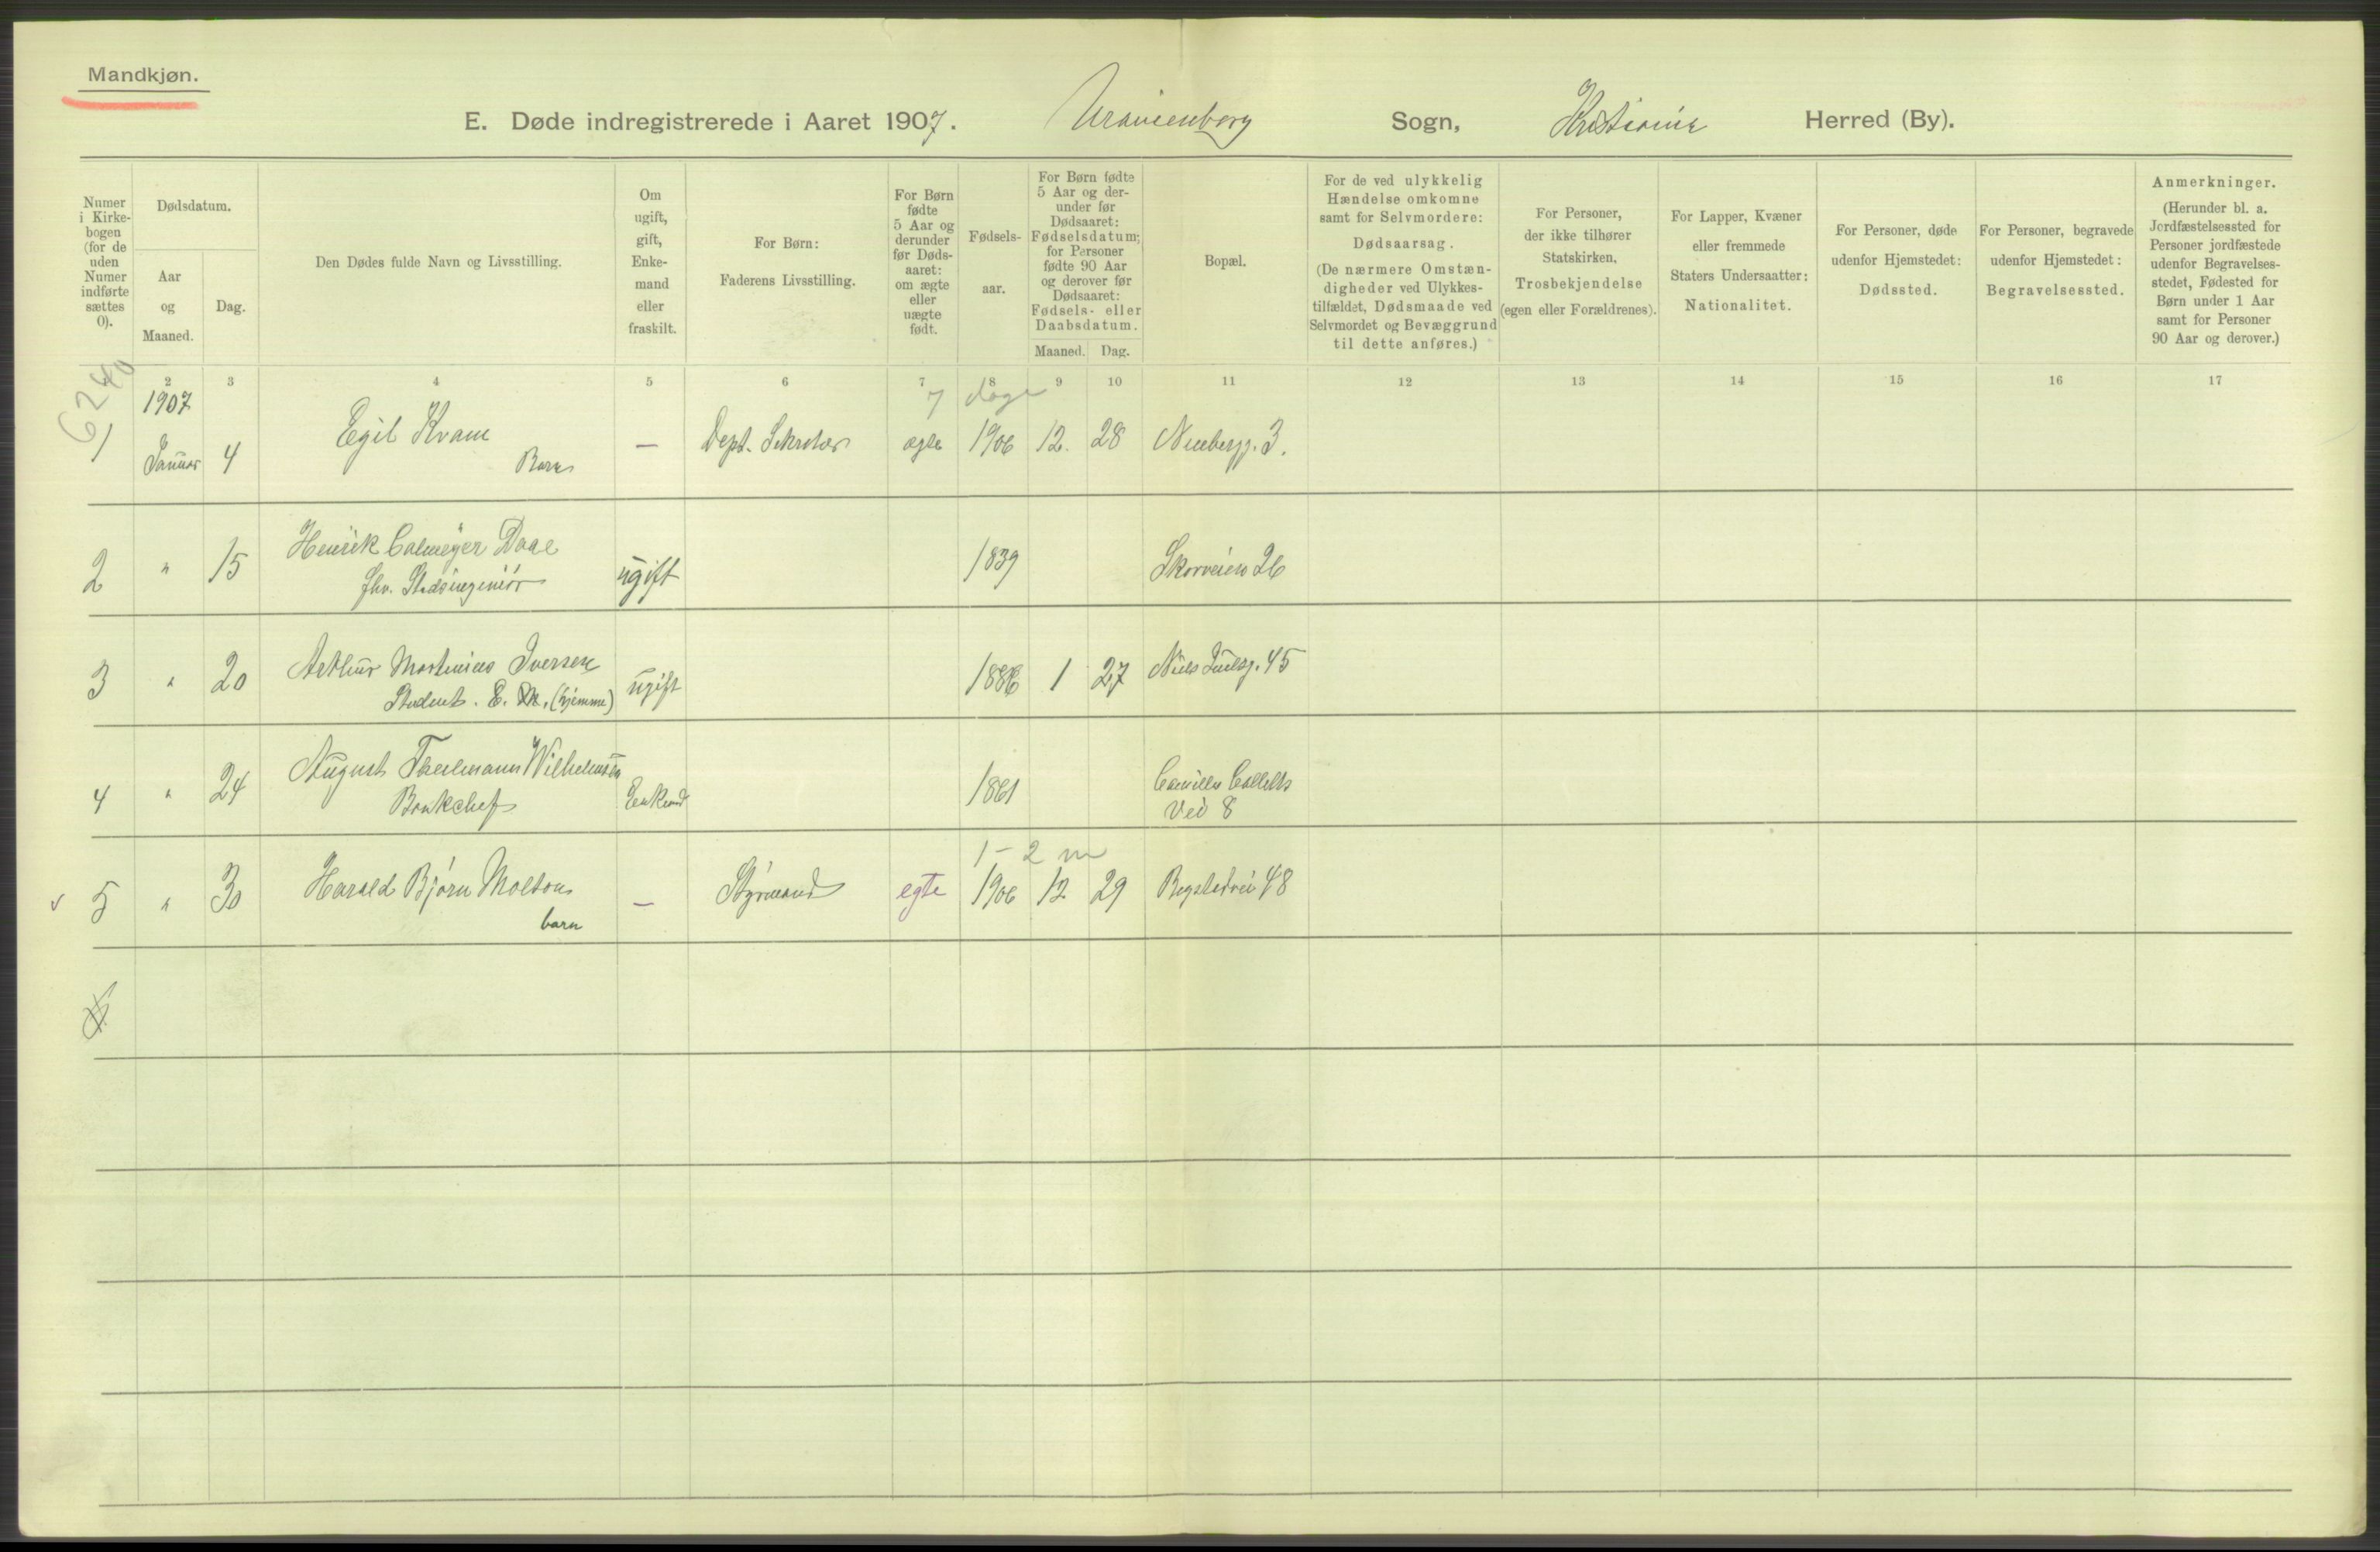 Mandkjøn.
E. Døde indregistrerede i Aaret 1907. Uranienborg Sogn, Kristiania Herred (By).
Numer i Kirkebogen (for de uden Numer indførte sættes 0).
Dødsdatum.
Aar og Maaned.
Dag.
Den Dødes fulde Navn og Livsstilling.
Om ugift, gift, Enkemand eller fraskilt.
For Børn: Faderens Livsstilling.
For Børn fødte 5 Aar og derunder før Dødsaaret: om ægte eller uægte født.
Fødselsaar.
For Børn fødte 5 Aar og derunder før Dødsaaret: Fødselsdatum; for Personer fødte 90 Aar og derover før Dødsaaret: Fødsels- eller Daabsdatum.
Maaned. Dag.
Bopæl.
For de ved ulykkelig Hændelse omkomne samt for Selvmordere: Dødsaarsag. (De nærmere Omstændigheder ved Ulykkestilfældet, Dødsmaade ved Selvmordet og Bevæggrund til dette anføres.)
For Personer, der ikke tilhører Statskirken, Trosbekjendelse (egen eller Forældrenes).
For Lapper, Kvæner eller fremmede Staters Undersaatter: Nationalitet.
For Personer, døde udenfor Hjemstedet: Dødssted.
For Personer, begravede udenfor Hjemstedet: Begravelsessted.
Anmerkninger. (Herunder bl. a. Jordfæstelsessted for Personer jordfæstede udenfor Begravelsesstedet, Fødested for Børn under 1 Aar samt for Personer 90 Aar og derover.)
2 3 4 5 6 7 8 9 10 11 12 13 14 15 16 17
6240
1907
7 dage
1 Januar 4 Egil Kvam — Dept. Sekretær ægte 1906 12. 28 3.
Barn
2 " 15 Henrik Calmeyer Daae ugift 1839 Skovveien 26
fhv. Stadsingeniør
3 " 20 Arthur Martinius Iversen ugift 1886 1 27 Niels Juelsg. 45
Student. E. M. (hjemme)
4 " 24 August Wilhelmsen Enkemd 1861 Camilla Colletts
Bankchef Vei 8
1 - 2 m
5 " 30 Harald Bjørn — Styrmand egte 1906 12 29 48
barn